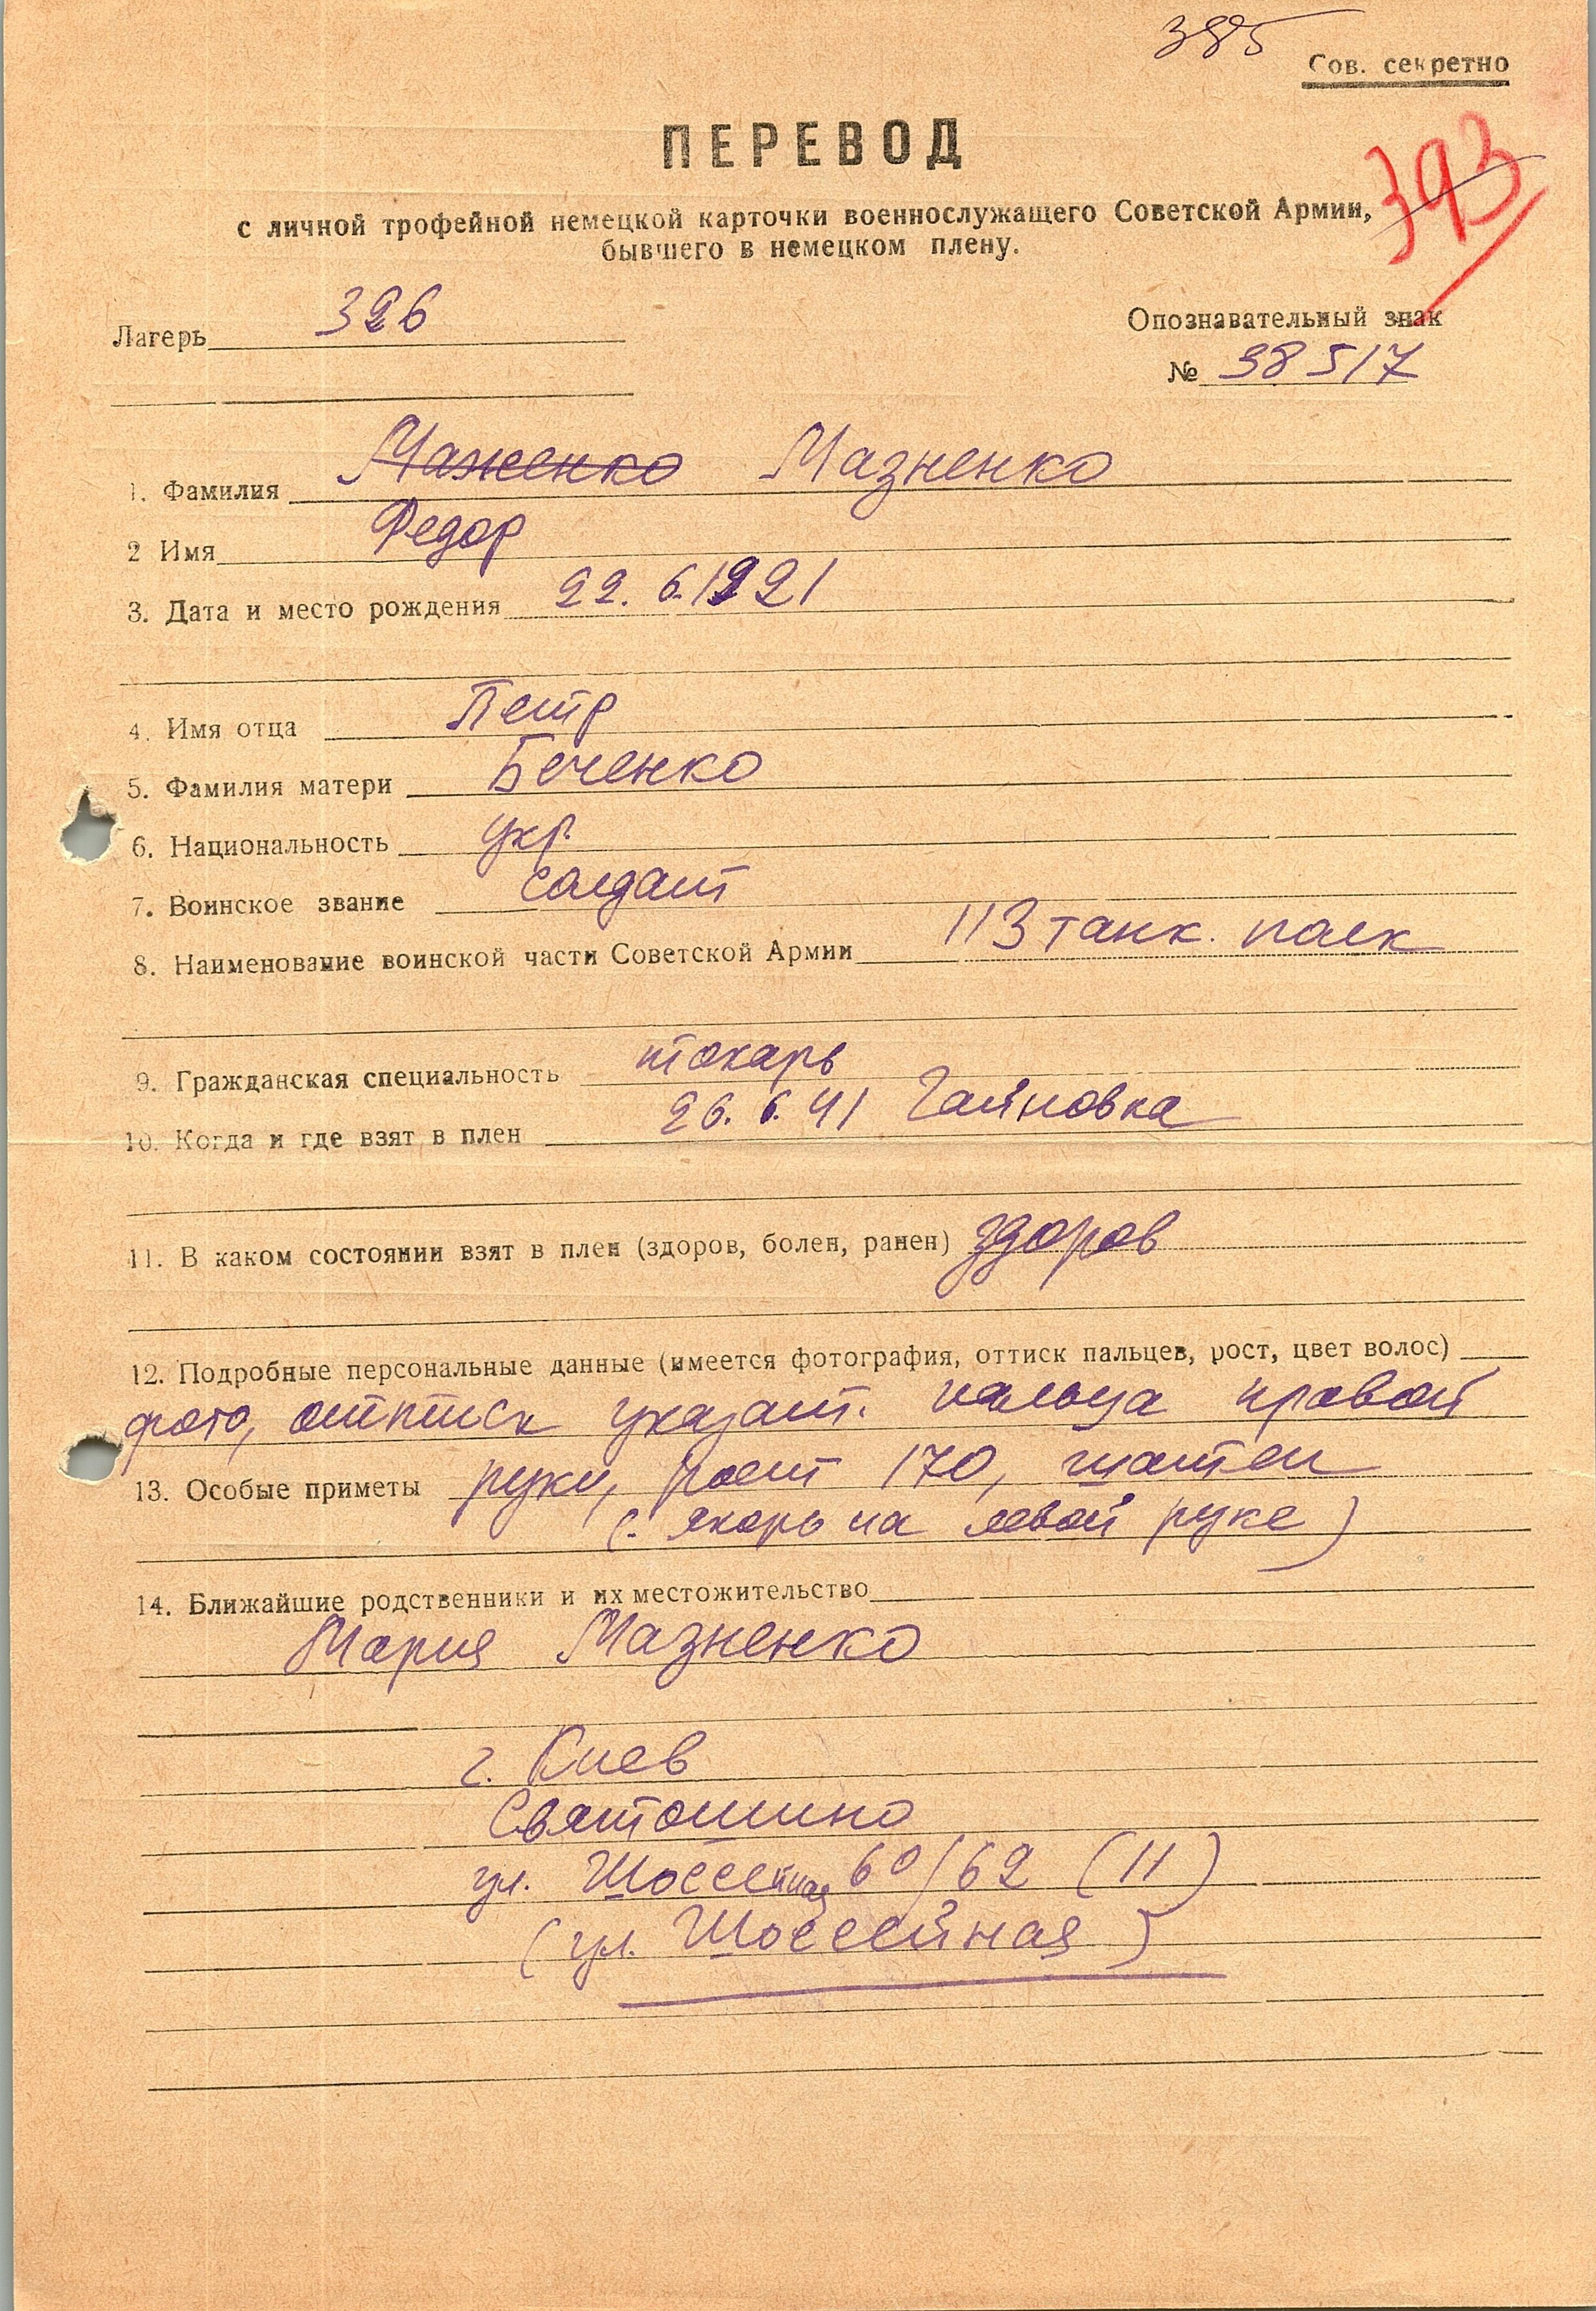 385
Сов. секретно
ПЕРЕВОД
393
с личной трофейной немецкой карточки военнослужащего Советской Армии,
бывшего в немецком плену.
Лагерь 326
Опознавательный знак
№ 38517
1. Фамилия Маженко Мазненко
2 Имя Федор
3. Дата и место рождения 22. 6. 1921
4. Имя отца Петр
5. Фамилия матери Беченко
6. Национальность укр.
7. Воинское звание солдат
8. Наименование воинской части Советской Армии 113 танк. полк
9. Гражданская специальность токарь
10. Когда и где взят в плен 26. 6. 41 Гайновка
11. В каком состоянии взят в плен (здоров, болен, ранен) здоров
12. Подробные персональные данные (имеется фотография, оттиск пальцев, рост, цвет волос)
фото, оттиск указат. пальца правой
13. Особые приметы руки, рост 170, шатен
(якорь на левой руке)
14. Ближайшие родственники и их местожительство
Мария Мазненко
г. Киев
Святошино
ул. Шоссейная 60/62 (11)
(ул. Шоссейная)